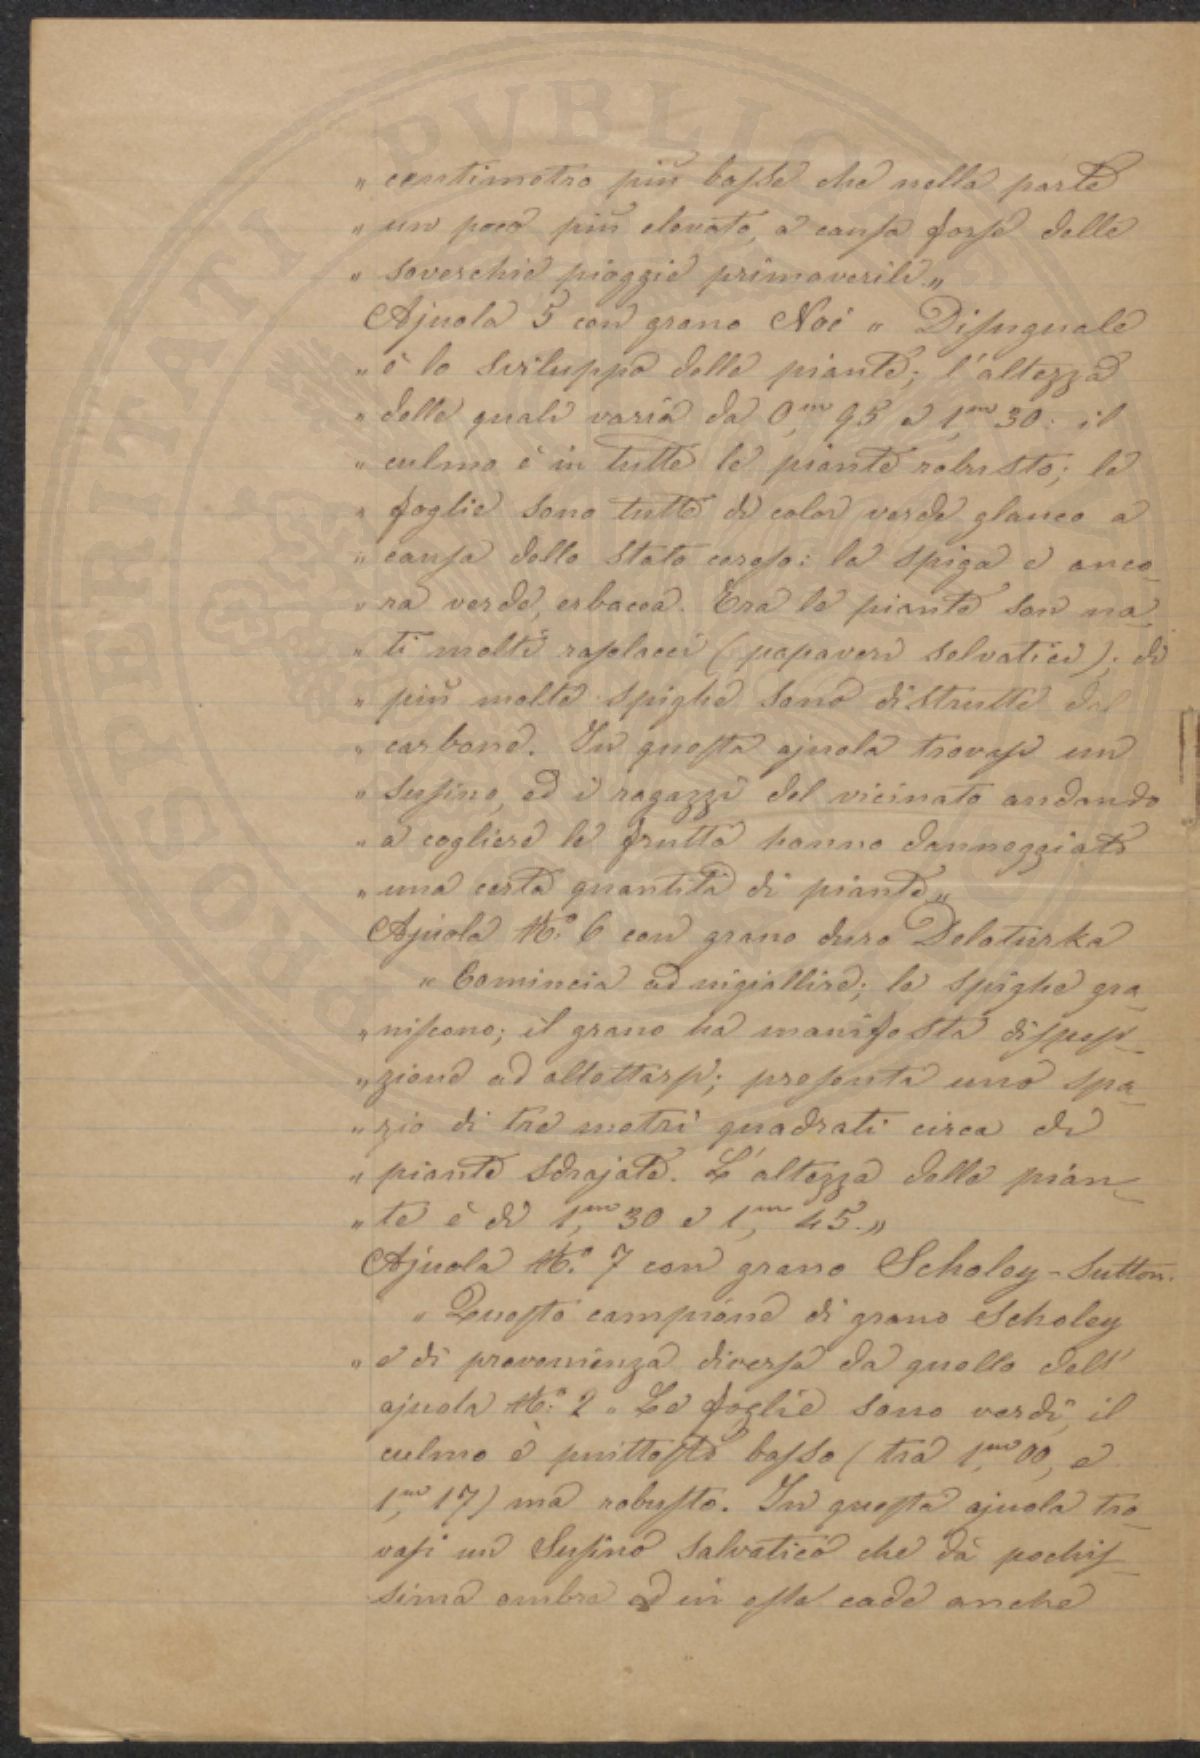 „ centimetro più basse che nella parte
„ un poco più elevata, a causa forse delle
„ soverchie pioggie primaverili „
Ajuola 5 con grano Noè „ Disuguale
„ è lo sviluppo delle piante; l'altezza
„ delle quali varia da 0,m 95 a 1,m 30: il
„ culmo è in tutte le piante robusto; le
„ foglie sono tutte di color verde glauco a
„ causa dello stato ceroso: la spiga è anco-
„ ra verde, erbacea. Tra le piante son na-
„ ti molti rosolacci (papaveri selvatici); di
„ più molte spighe sono distrutte dal
„ carbone. In questa ajuola trovasi un
„ susino, ed i ragazzi del vicinato andando
„ a cogliere le frutta hanno danneggiato
„ una certa quantità di piante „
Ajuola No. 6 con grano duro Deloturka
„ Comincia ad ingiallire; le spighe gra-
„ niscono; il grano ha manifesta disposi-
„ zione ad allettarsi; presenta uno spa-
„ zio di tre metri quadrati circa di
„ piante sdrajate. L'altezza delle pian-
„ te è di 1,m 30 a 1,m 45. „
Ajuola No. 7 con grano Scholey-Sutton.
„ Questo campione di grano Scholey
„ è di provenienza diversa da quello dell'
ajuola No. 2 „ Le foglie sono verdi, il
culmo è piuttosto basso (tra 1,m 00, e
1,m 17) ma robusto. In questa ajuola tro-
vasi un Susino salvatico che dà pochis-
sima ombra ed in essa cade anche
PROSPERITATI PVBLICAE